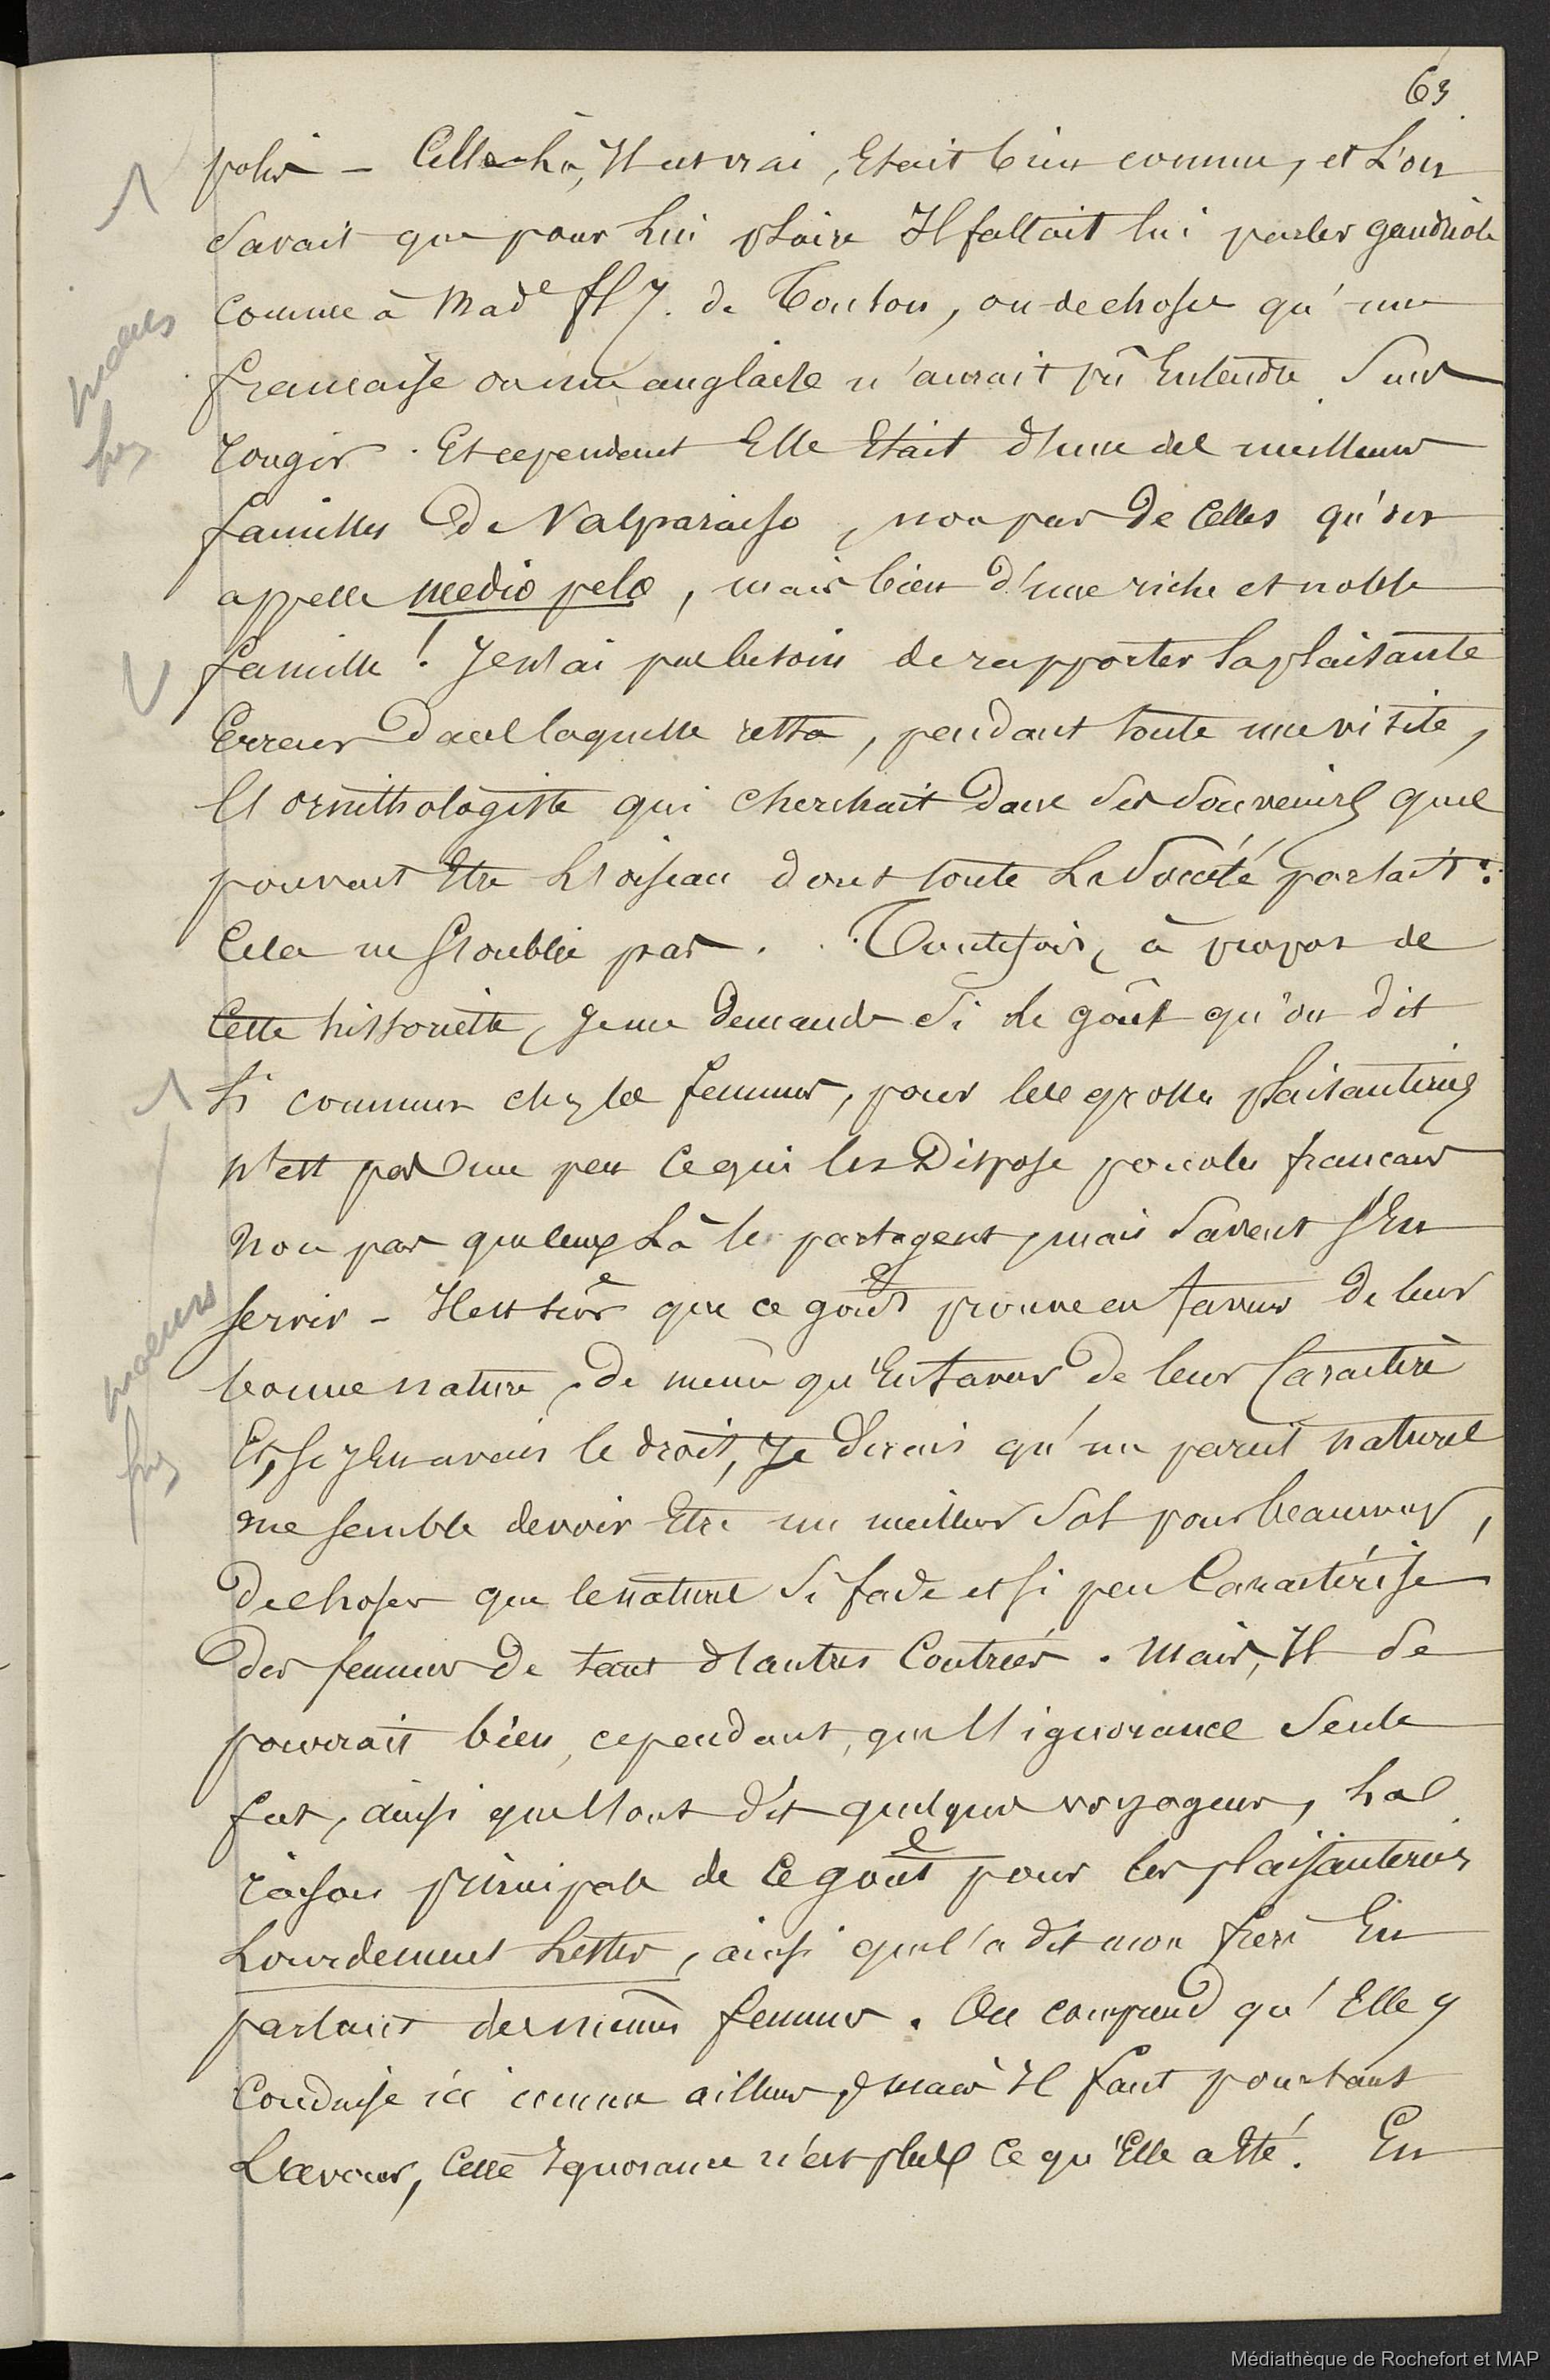 63
polis - Celle-là, Il est vrai, Etait bien connue, et L'on
Savait que pour Lui plaire Il fallait lui parler gaudriole
comme à Made de Toulon, ou de choses qu'une
francaise ou une anglaise n'aurait pû Entendre Sans
rougir. Et cependant Elle Etait d'une des meilleures
familles de Valparaiso, non pas de Celles qu'on
appelle medio pelo, mais bien d'une riche et noble
famille! Je n'ai pas besoin de rapporter la plaisante
Erreur dans laquelle resta, pendant toute une visite,
Un ornithologiste qui cherchait dans ses Souvenirs quel
pouvait Etre L'oiseau dont toute La Société parlait.
Cela ne s'oublie pas. Toutefois, à propos de
Cette historiette, Je me demande Si Le goût qu'on dit
Si commun chez les femmes, pour les grosses plaisanteries
N'est pas un peu Ce qui les Dispose pour les francais
Non pas que ceux Là le partagent, mais Savent S'En
servir - Il est sûr que ce goût prouve en faveur de leur
bonne nature, de même qu'En faveur de leur Caractère
Et, si J'En avais le droit, Je dirais qu'un pareil naturel
me semble devoir Etre un meilleur Sol pour beaucoup,
de choses que le naturel Si fade et si peu Caractérisé
des femmes de tant d'autres Contrées. Mais, Il Se
pourrait bien, cependant, que l'ignorance Seule
fut, ainsi que l'ont dit quelques voyageurs, La
raison principale de Ce goût pour les plaisanteries
Lourdement Lestes, ainsi que l'a dit mon frère En
parlant des mêmes femmes. On comprend qu'Elle y
Conduise ici comme ailleurs, mais Il faut pourtant
L'avouer, Cette Ignorance n'est plus Ce qu'Elle a Eté. En
moeurs
moeurs
Médiathèque de Rochefort et MAP